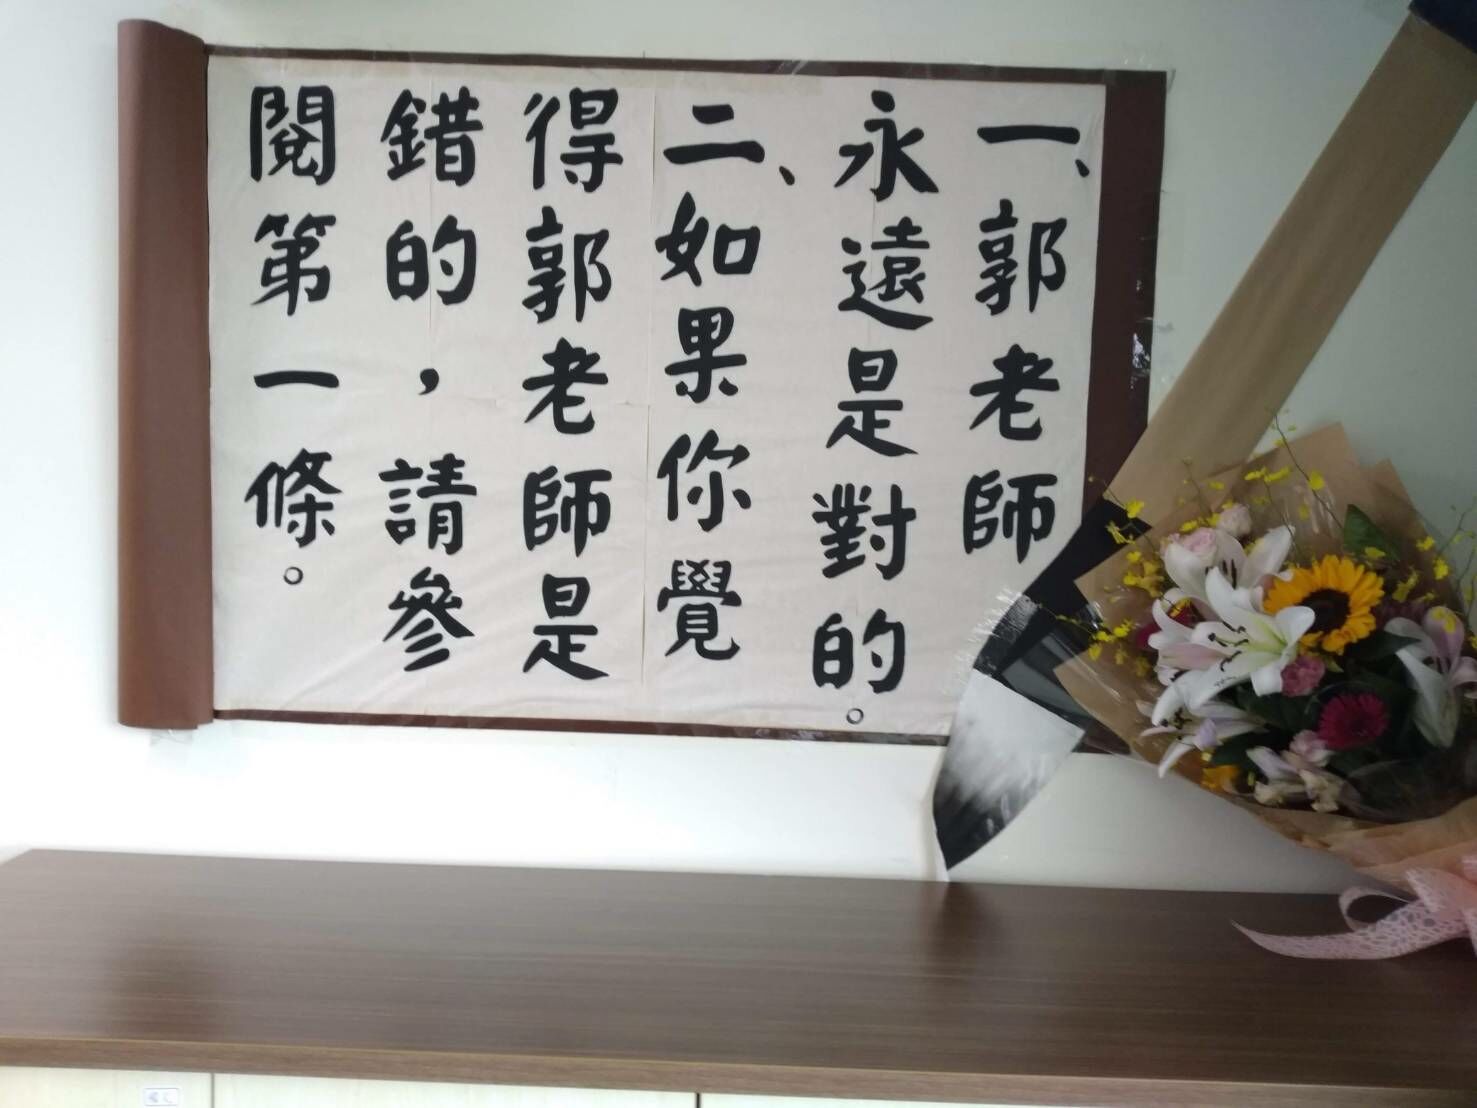 一、郭老師
永遠是對的。
二、如果你覺
得郭老師是
錯的，請參
閱第一條。